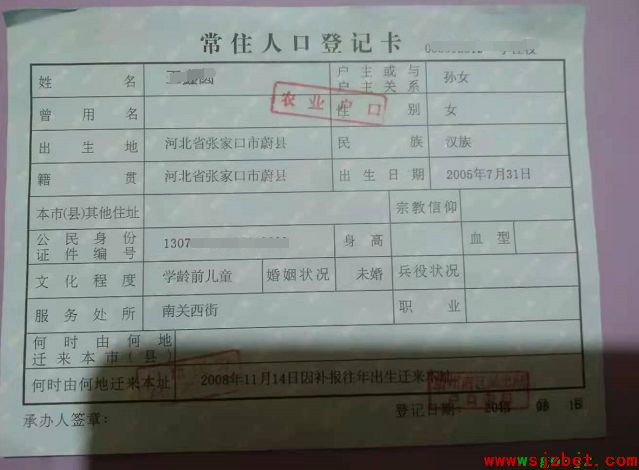 常住人口登记卡
姓名 户主或与户主关系 孙女
农业户口
曾用名 性别 女
出生地 河北省张家口市蔚县 民族 汉族
籍贯 河北省张家口市蔚县 出生日期 2005年7月31日
本市(县)其他住址 宗教信仰
公民身份证件编号 1307 身高 血型
文化程度 学龄前儿童 婚姻状况 未婚 兵役状况
服务处所 南关西街 职业
何时由何地迁来本市(县)
何时由何地迁来本址 2008年11月14日因补报往年出生迁来本址
承办人签章: 登记日期:
www.sjzbct.com